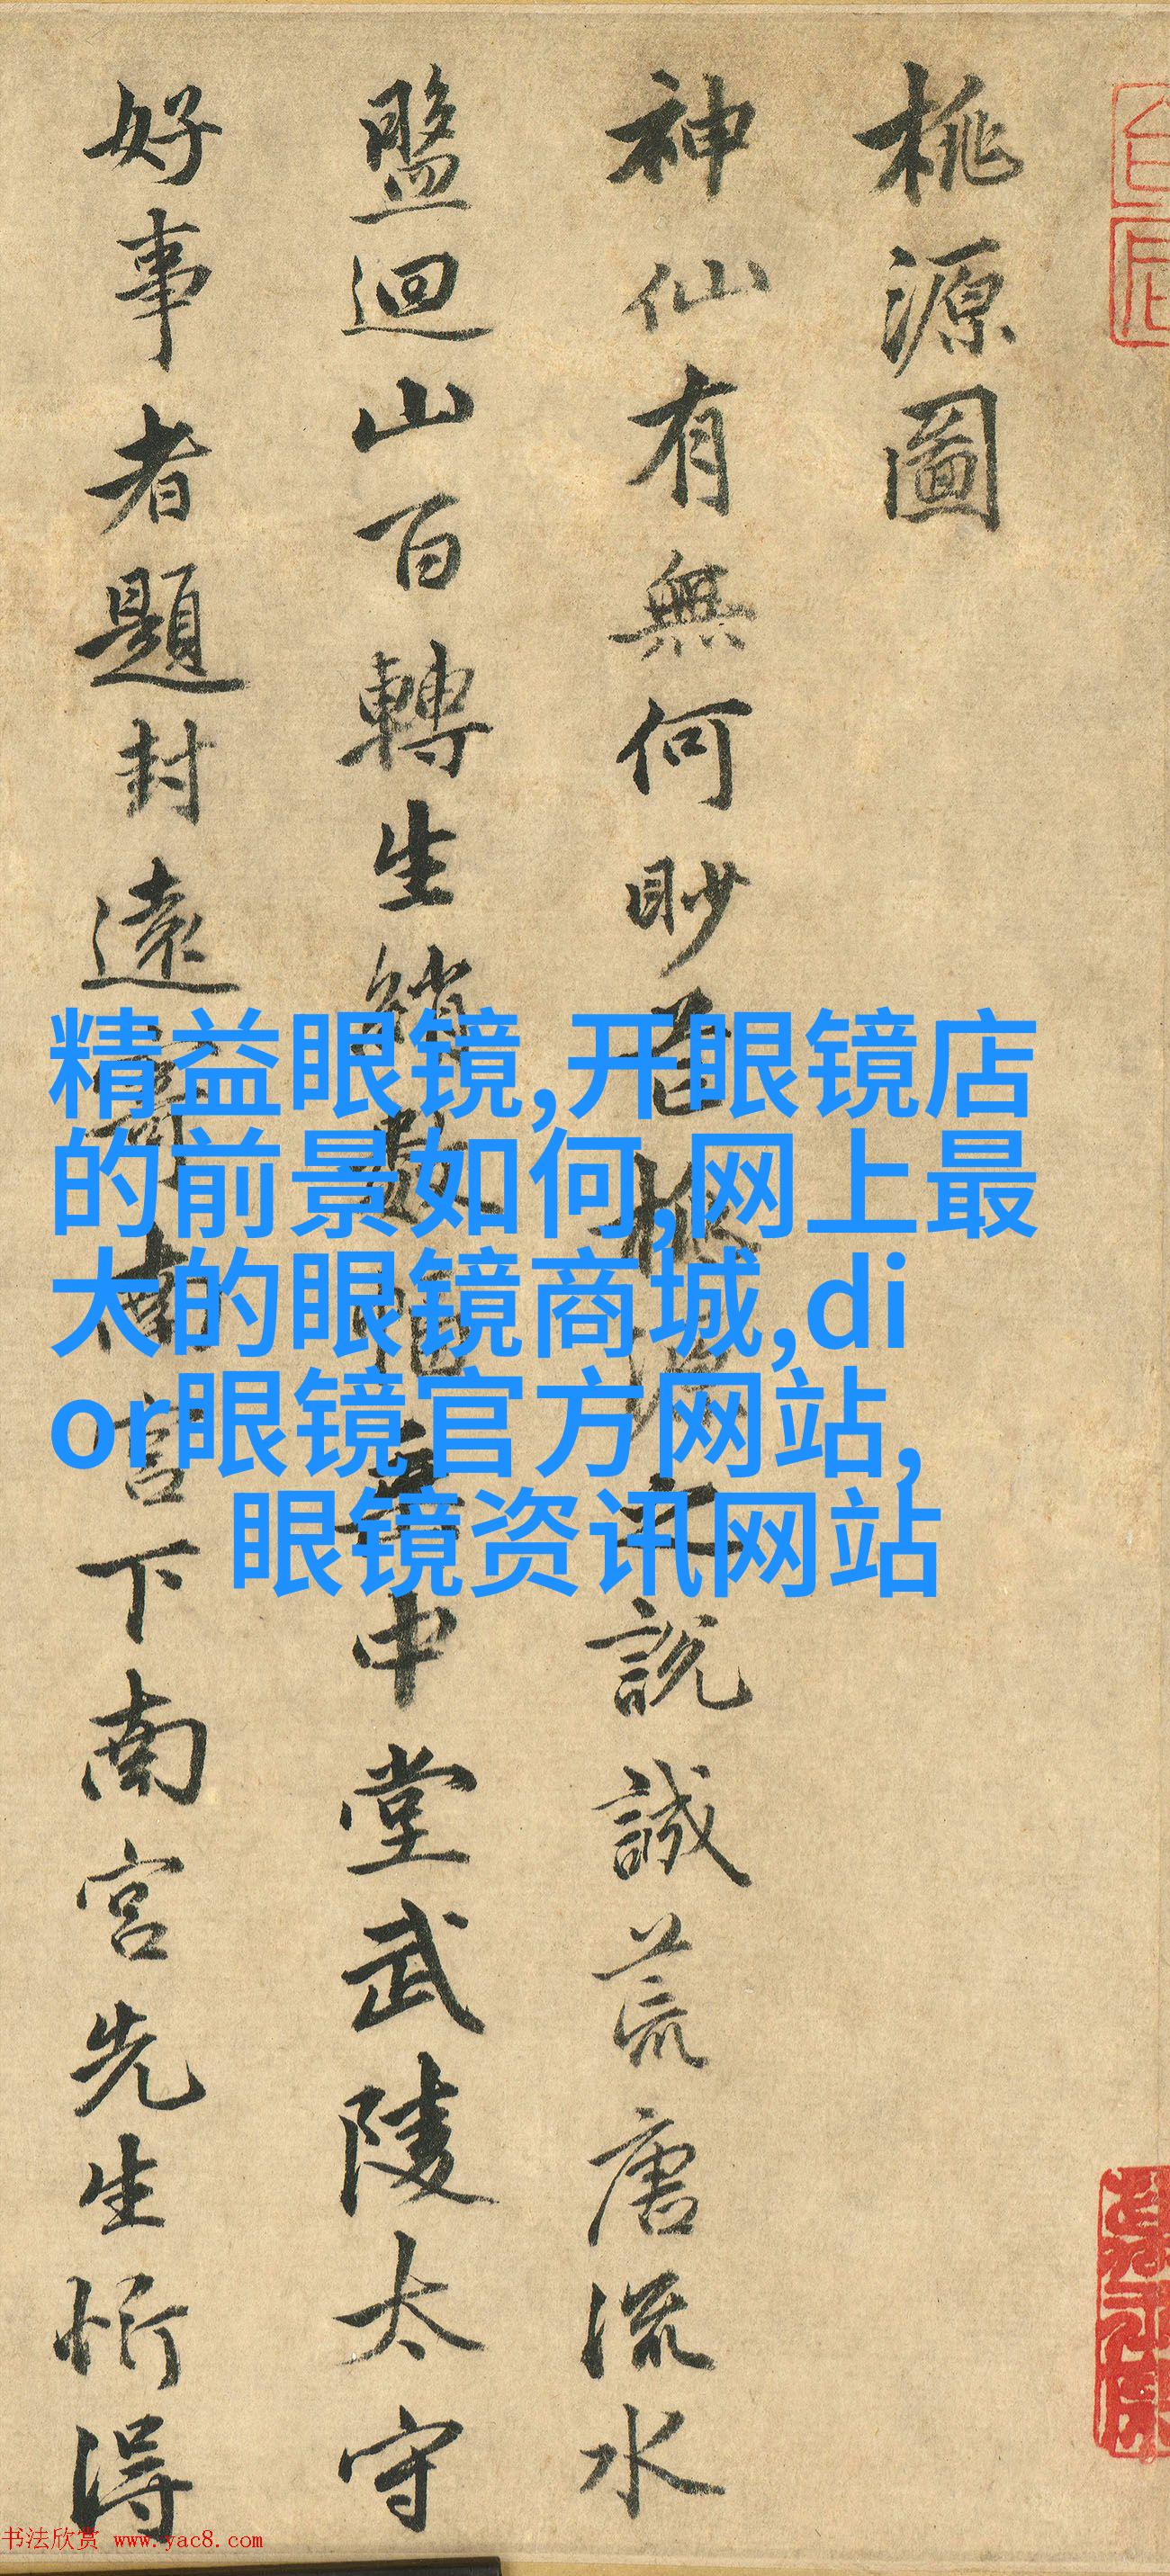 桃源圖
神仙有無何眇桃源之説誠荒唐流水
盤迴山百轉生綃數幅垂中堂武陵太守
好事者題封遠寄南宮下南宮先生忻得
精益眼镜,开眼镜店
的前景如何,网上最
大的眼镜商城,di
or眼镜官方网站,
眼镜资讯网站
书法欣赏 www.yac8.com